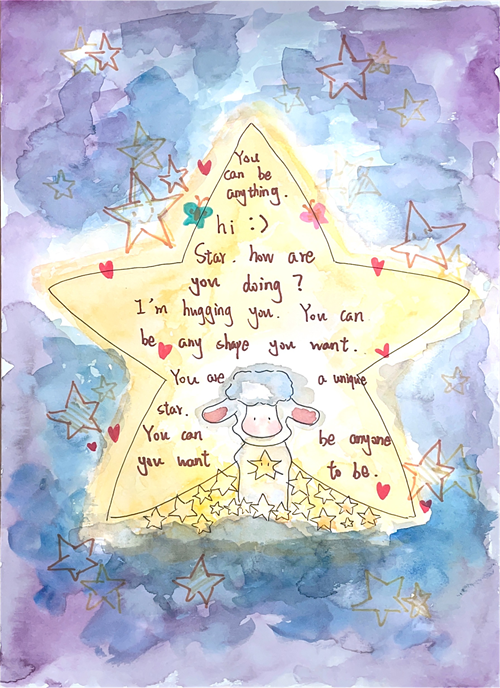 You
can be
anything.
hi :)
Star. how are
you doing ?
I'm hugging you. You can
be any shape you want..
You are a unique
star.
You can be anyone
you want to be.